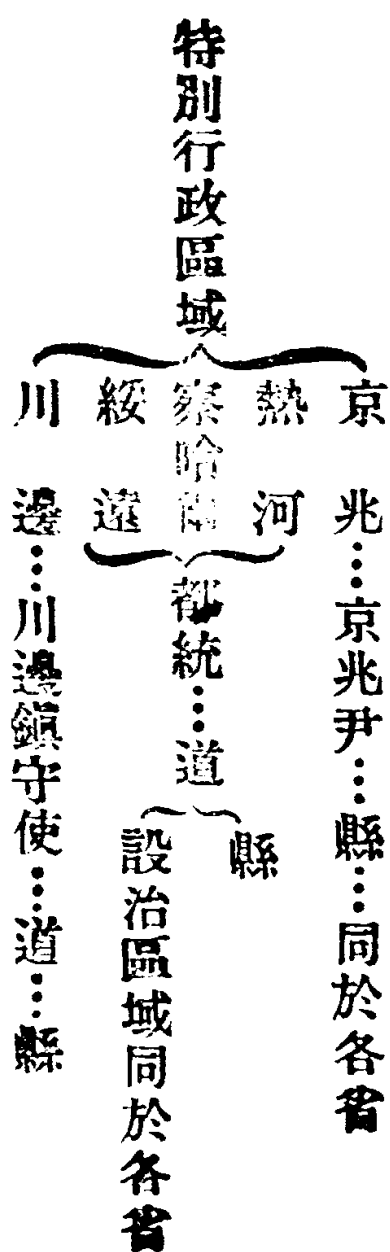 特別行政區域
京兆……京兆尹……縣……同於各省
熱河
察哈爾
綏遠
都統……道
縣
設治區域同於各省
川邊……川邊鎮守使……道……縣